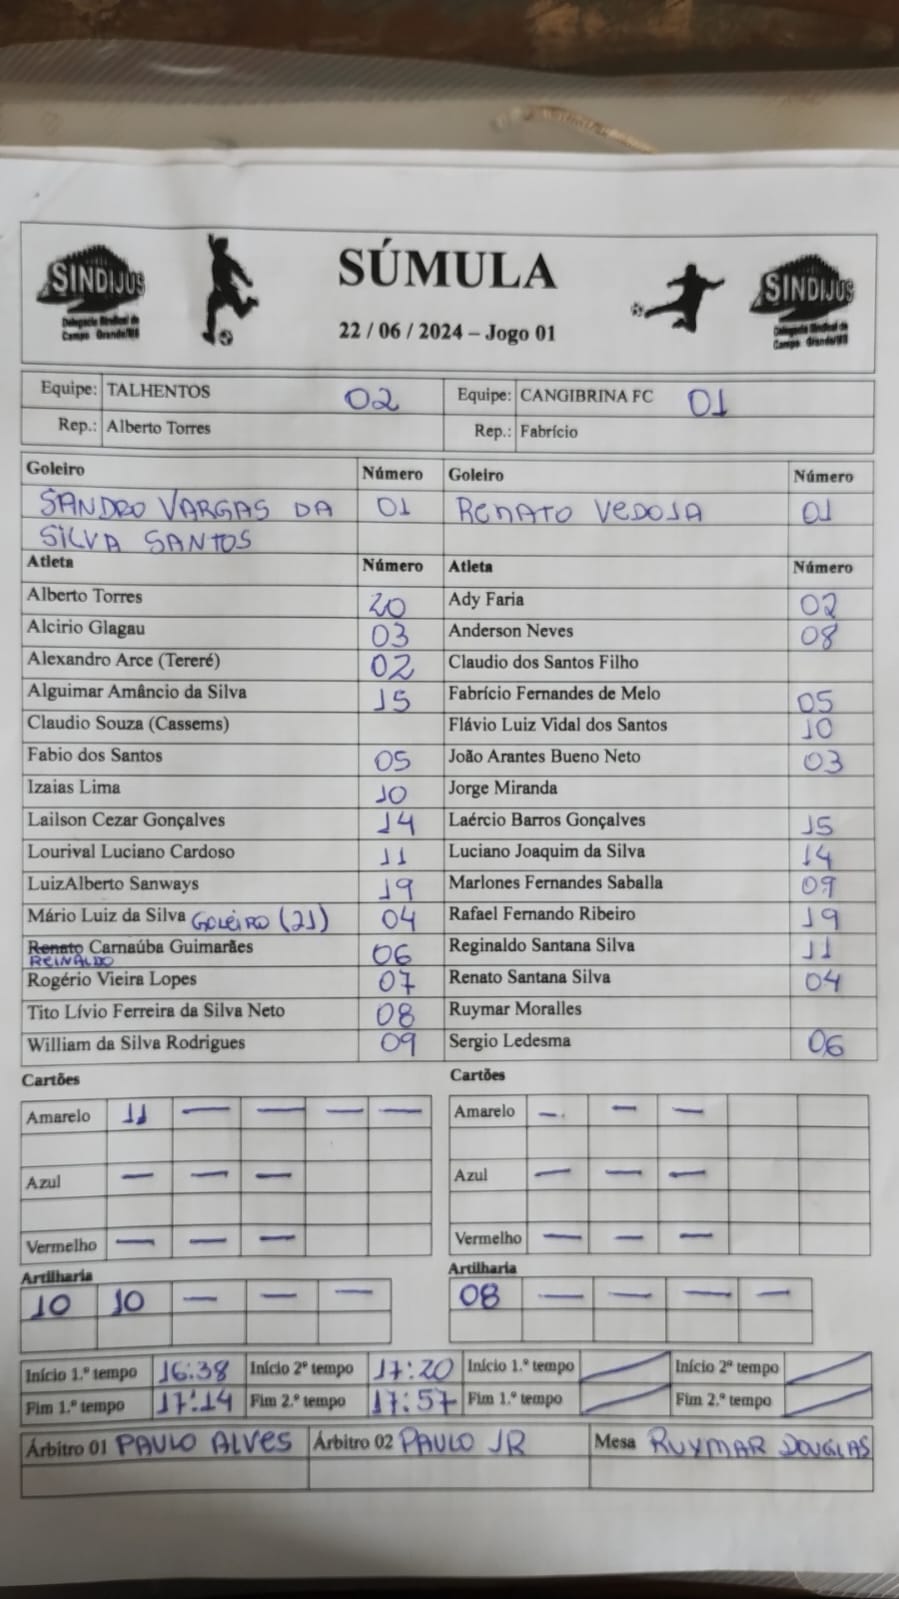 SINDIJUS
Delegacia Sindical de
Campo Grande/MS
SÚMULA
22 / 06 / 2024 – Jogo 01
SINDIJUS
Delegacia Sindical de
Campo Grande/MS
Equipe: TALHENTOS 02 Equipe: CANGIBRINA FC 01
Rep.: Alberto Torres Rep.: Fabrício
Goleiro Número Goleiro Número
SANDRO VARGAS DA 01 RENATO VEDOJA 01
SILVA SANTOS
Atleta Número Atleta Número
Alberto Torres 20 Ady Faria 02
Alcirio Glagau 03 Anderson Neves 08
Alexandro Arce (Tereré) 02 Claudio dos Santos Filho
Alguimar Amâncio da Silva 15 Fabrício Fernandes de Melo 05
Claudio Souza (Cassems) Flávio Luiz Vidal dos Santos 10
Fabio dos Santos 05 João Arantes Bueno Neto 03
Izaias Lima 10 Jorge Miranda
Lailson Cezar Gonçalves 14 Laércio Barros Gonçalves 15
Lourival Luciano Cardoso 11 Luciano Joaquim da Silva 14
LuizAlberto Sanways 19 Marlones Fernandes Saballa 09
Mário Luiz da Silva GOLEIRO (21) 04 Rafael Fernando Ribeiro 19
Renato Carnaúba Guimarães 06 Reginaldo Santana Silva 11
REINALDO
Rogério Vieira Lopes 07 Renato Santana Silva 04
Tito Lívio Ferreira da Silva Neto 08 Ruymar Moralles
William da Silva Rodrigues 09 Sergio Ledesma 06
Cartões Cartões
Amarelo 11 — — — — Amarelo — — —
Azul — — — Azul — — —
Vermelho — — — Vermelho — — —
Artilharia Artilharia
10 10 — — — 08 — — — —
Início 1.º tempo 16:38 Início 2º tempo 17:20 Início 1.º tempo Início 2º tempo
Fim 1.º tempo 17:14 Fim 2.º tempo 17:57 Fim 1.º tempo Fim 2.º tempo
Árbitro 01 PAULO ALVES Árbitro 02 PAULO JR Mesa RUYMAR DOUGLAS